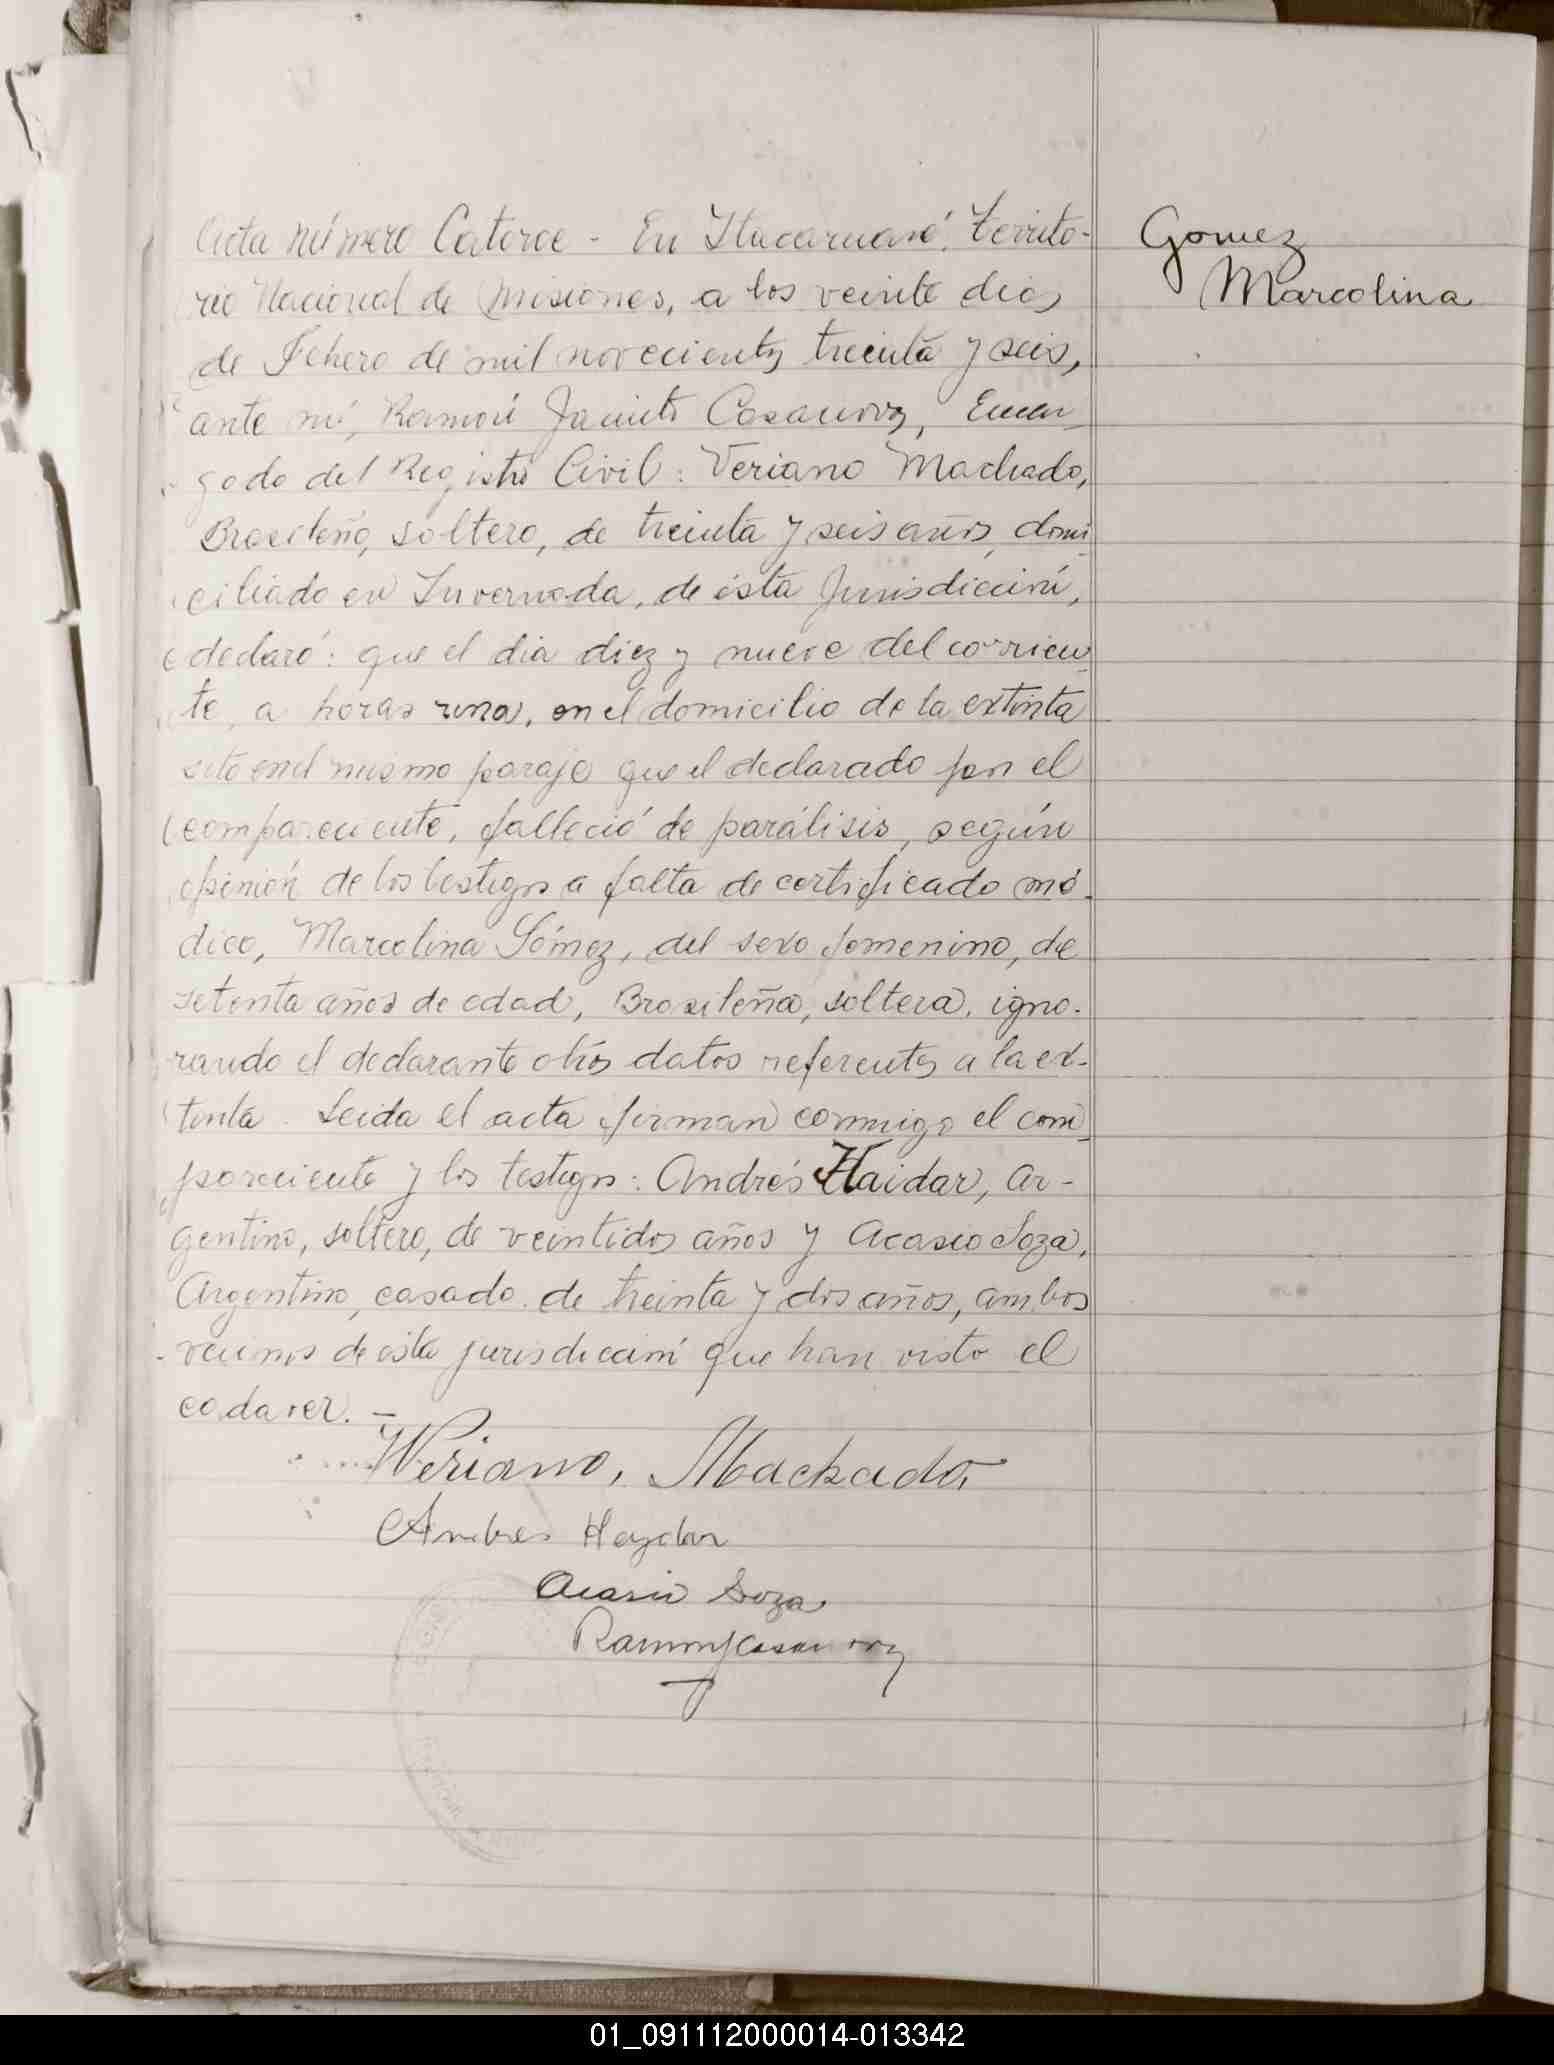 Acta número Catorce - En Itacaruaré, Territo-
rio Nacional de Misiones, a los veinte dias
de Febrero de mil novecientos treinta y seis,
ante mí, Ramón Jacinto Casanova, Encar-
gado del Registro Civil: Veriano Machado,
Brasileño, soltero, de treinta y seis años, domi-
ciliado en Invernada, de ésta Jurisdicción,
declaró: que el dia diez y nueve del corrien-
te, a horas una, en el domicilio de la extinta
sito en el mismo paraje que el declarado por el
compareciente, falleció de parálisis, según
opinión de los testigos a falta de certificado mé-
dico, Marcolina Gómez, del sexo femenino, de
setenta años de edad, Brasileña, soltera, igno-
rando el declarante otros datos referentes a la ex-
tinta. Leida el acta firman conmigo el com-
pareciente y los testigos: Andrés Haidar, Ar-
gentino, soltero, de veintidos años y Acasio Soza,
Argentino, casado de treinta y dos años, ambos
vecinos de ésta jurisdicción que han visto el
cadaver. -
Weriano, Machado,
Andres Haydar
Acasio Soza
Ramon J Casanova
Gomez
Marcolina
01_091112000014-013342